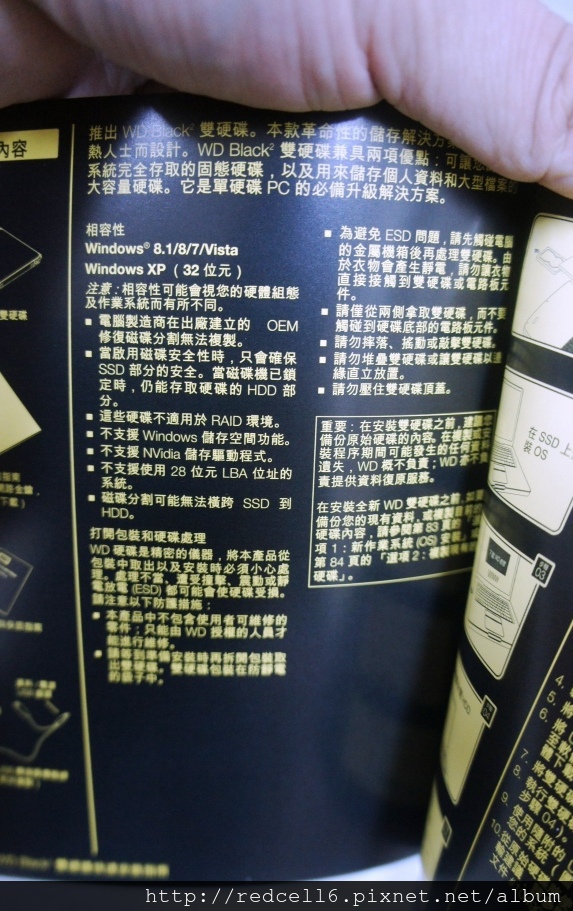 內容
推出 WD Black² 雙硬碟。本款革命性的儲存解決方
熱人士而設計。WD Black² 雙硬碟兼具兩項優點：可讓
系統完全存取的固態硬碟，以及用來儲存個人資料和大型檔案的
大容量硬碟。它是單硬碟 PC 的必備升級解決方案。
相容性
Windows® 8.1/8/7/Vista
Windows XP（32 位元）
注意：相容性可能會視您的硬體組態
及作業系統而有所不同。
■ 電腦製造商在出廠建立的 OEM
修復磁碟分割無法複製。
■ 當啟用磁碟安全性時，只會確保
SSD 部分的安全。當磁碟機已鎖
定時，仍能存取硬碟的 HDD 部
分。
■ 這些硬碟不適用於 RAID 環境。
■ 不支援 Windows 儲存空間功能。
■ 不支援 NVidia 儲存驅動程式。
■ 不支援使用 28 位元 LBA 位址的
系統。
■ 磁碟分割可能無法橫跨 SSD 到
HDD。
打開包裝和硬碟處理
WD 硬碟是精密的儀器，將本產品從
包裝中取出以及安裝時必須小心處
理。處理不當、遭受撞擊、震動或靜
電放電 (ESD) 都可能會使硬碟受損。
請注意以下防護措施：
■ 本產品中不包含使用者可維修的
零件；只能由 WD 授權的人員才
能進行維修。
■ 安裝時再拆開包裝取
出雙硬碟。 硬碟包裝在防靜電
的袋子中。
■ 為避免 ESD 問題，請先觸碰電腦
的金屬機箱後再處理雙硬碟。由
於衣物會產生靜電，請勿讓衣物
直接接觸到雙硬碟或電路板元
件。
■ 請僅從兩側拿取雙硬碟，而不要
觸碰到硬碟底部的電路板元件。
■ 請勿摔落、搖動或敲擊雙硬碟。
■ 請勿堆疊雙硬碟或讓雙硬碟以邊
緣直立放置。
■ 請勿壓住雙硬碟頂蓋。
重要：在安裝雙硬碟之前，建議您
備份原始硬碟的內容。在複製或安
裝程序期間可能發生的任何資料
遺失，WD 概不負責；WD 亦不負
責提供資料復原服務。
在安裝全新 WD 雙硬碟之前，如要
備份您的現有資料，或複製
硬碟內容，請參閱第 83 頁的「選
項 1：新作業系統 (OS) 安裝」或
第 84 頁的「選項 2：複製現有
硬碟」。
在 SSD 上
裝 OS
步驟
03
4.
5. 將
6. 將
7. 將雙
8. 執行雙
步驟 04
9. 使用隨附的
您的系統（
10. 從
http://redcell6.pixnet.net/album